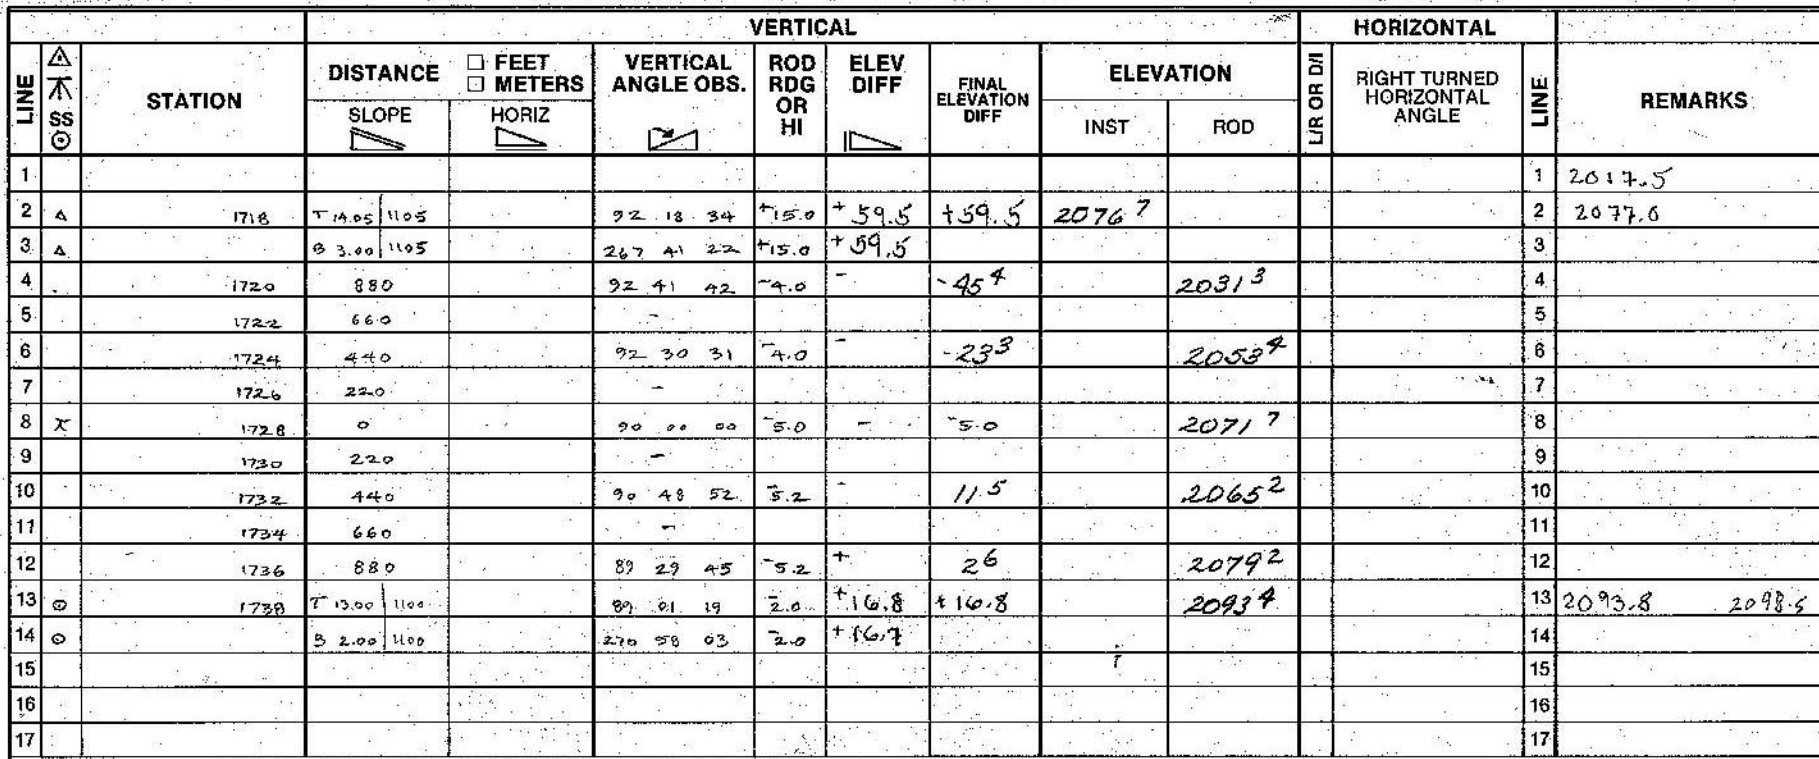 VERTICAL HORIZONTAL
LINE SS STATION DISTANCE □ FEET □ METERS VERTICAL ANGLE OBS. ROD RDG OR HI ELEV DIFF FINAL ELEVATION DIFF ELEVATION L/R OR D/I RIGHT TURNED HORIZONTAL ANGLE LINE REMARKS
SLOPE HORIZ INST ROD
1 1 2017.5
2 △ 1718 T 14.05 1105 92 18 34 +15.0 +59.5 +59.5 2076 7 2 2077.0
3 △ B 3.00 1105 267 41 22 +15.0 +59.5 3
4 1720 880 92 41 42 -4.0 - -45 4 2031 3 4
5 1722 660 - 5
6 1724 440 92 30 31 -4.0 - -23 3 2053 4 6
7 1726 220 - 7
8 1728 0 90 00 00 -5.0 - -5.0 2071 7 8
9 1730 220 - 9
10 1732 440 90 48 52 -5.2 - 11 5 2065 2 10
11 1734 660 - 11
12 1736 880 89 29 45 -5.2 + 2 6 2079 2 12
13 ⊙ 1738 T 13.00 1100 89 01 19 -2.0 +16.8 +16.8 2093 4 13 2093.8 2098.5
14 ⊙ B 2.00 1100 270 58 03 -2.0 +16.7 14
15 15
16 16
17 17